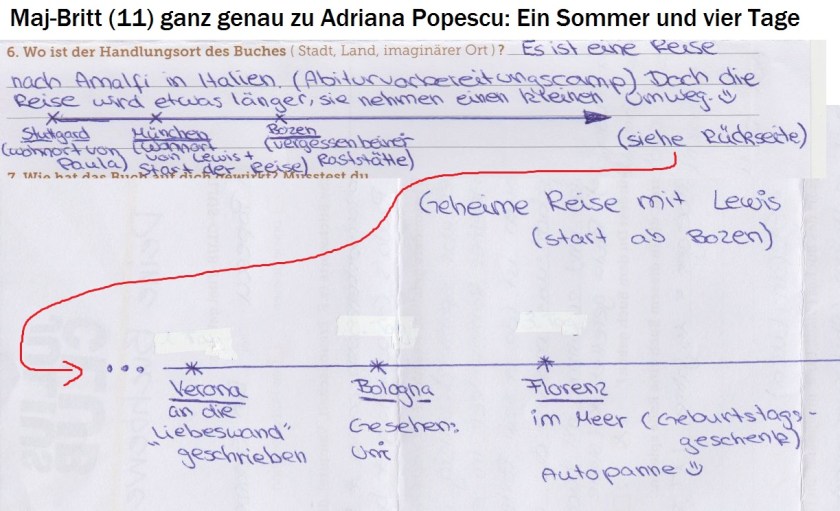 Maj-Britt (11) ganz genau zu Adriana Popescu: Ein Sommer und vier Tage
6. Wo ist der Handlungsort des Buches (Stadt, Land, imaginärer Ort)? Es ist eine Reise
nach Amalfi in Italien. (Abiturvorbereitungscamp) Doch die
Reise wird etwas länger, sie nehmen einen kleinen Umweg. ☺
Stuttgard München Bozen
(wohnort von (wohnort (vergessen beiner (siehe Rückseite)
Paula) von Lewis + Raststätte)
Start der Reise)
7. Wie hat das Buch auf dich gewirkt? Musstest du
Geheime Reise mit Lewis
(start ab Bozen)
Verona Bologna Florenz
an die Gesehen: im Meer (Geburtstags-
"Liebeswand" Uni geschenk)
geschrieben Autopanne ☺